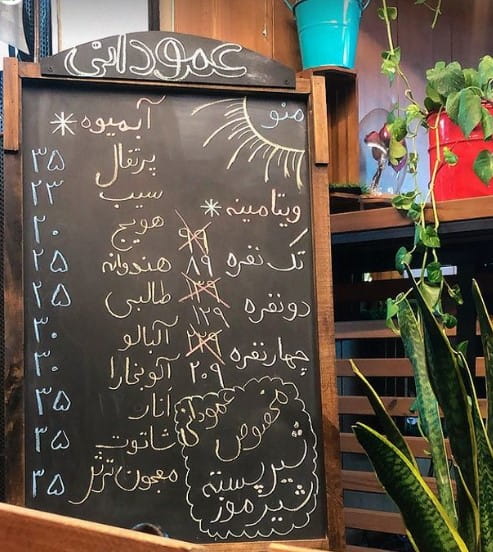 عمودانی
منو
* ویتامینه
تک نفره ۸۹
دونفره ۱۳۹ ۱۲۹
چهارنفره ۲۳۹ ۲۰۹
مخصوص عمودانی
شیر پسته
شیر موز
آبمیوه *
پرتقال ۳۵
سیب ۲۳
هویج ۲۰
هندوانه ۲۵
طالبی ۲۵
آلبالو ۳۰
آلوبخارا ۳۰
انار ۳۵
شاتوت ۳۵
معجون ۳۵